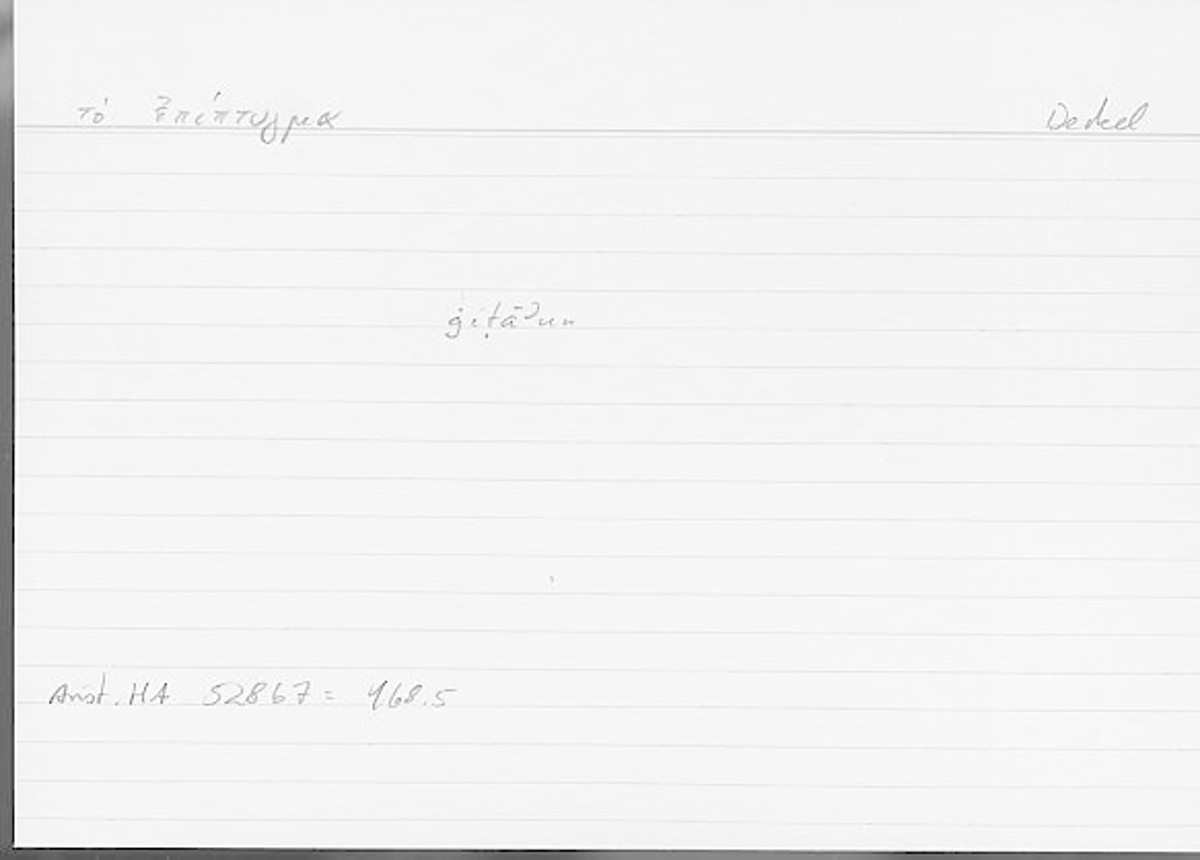 τὸ ἐπίπτυγμα Deckel
ġiṭāʾun
Arist. HA 528b7 = 168.5